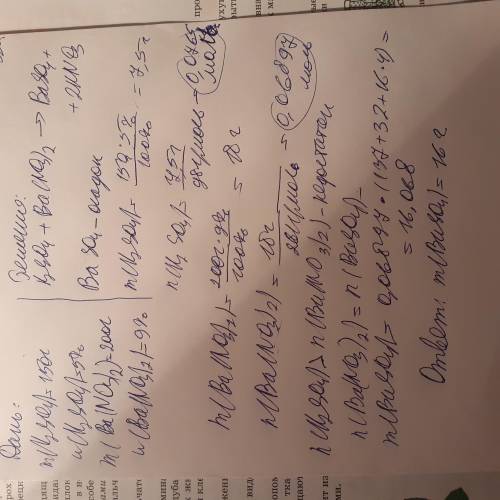 Дано:
m(H₂SO₄)=150г
w(H₂SO₄)=5%
m(Ba(NO₃)₂)=200г
w(Ba(NO₃)₂)=9%
Решение:
H₂SO₄+Ba(NO₃)₂ → BaSO₄+
+2HNO₃
BaSO₄ - осадок
m(H₂SO₄)= 150·5% / 100% = 7,5г
n(H₂SO₄)= 7,5г / 98г/моль = 0,0765 моль
m(Ba(NO₃)₂)= 200г·9% / 100% = 18г
n(Ba(NO₃)₂)= 18г / 261г/моль = 0,06897 моль
n(H₂SO₄) > n(Ba(NO₃)₂) - недостаток
n(Ba(NO₃)₂) = n(BaSO₄)=
m(BaSO₄)= 0,06897·(137+32+16·4)=
= 16,068
Ответ: m(BaSO₄)=16г